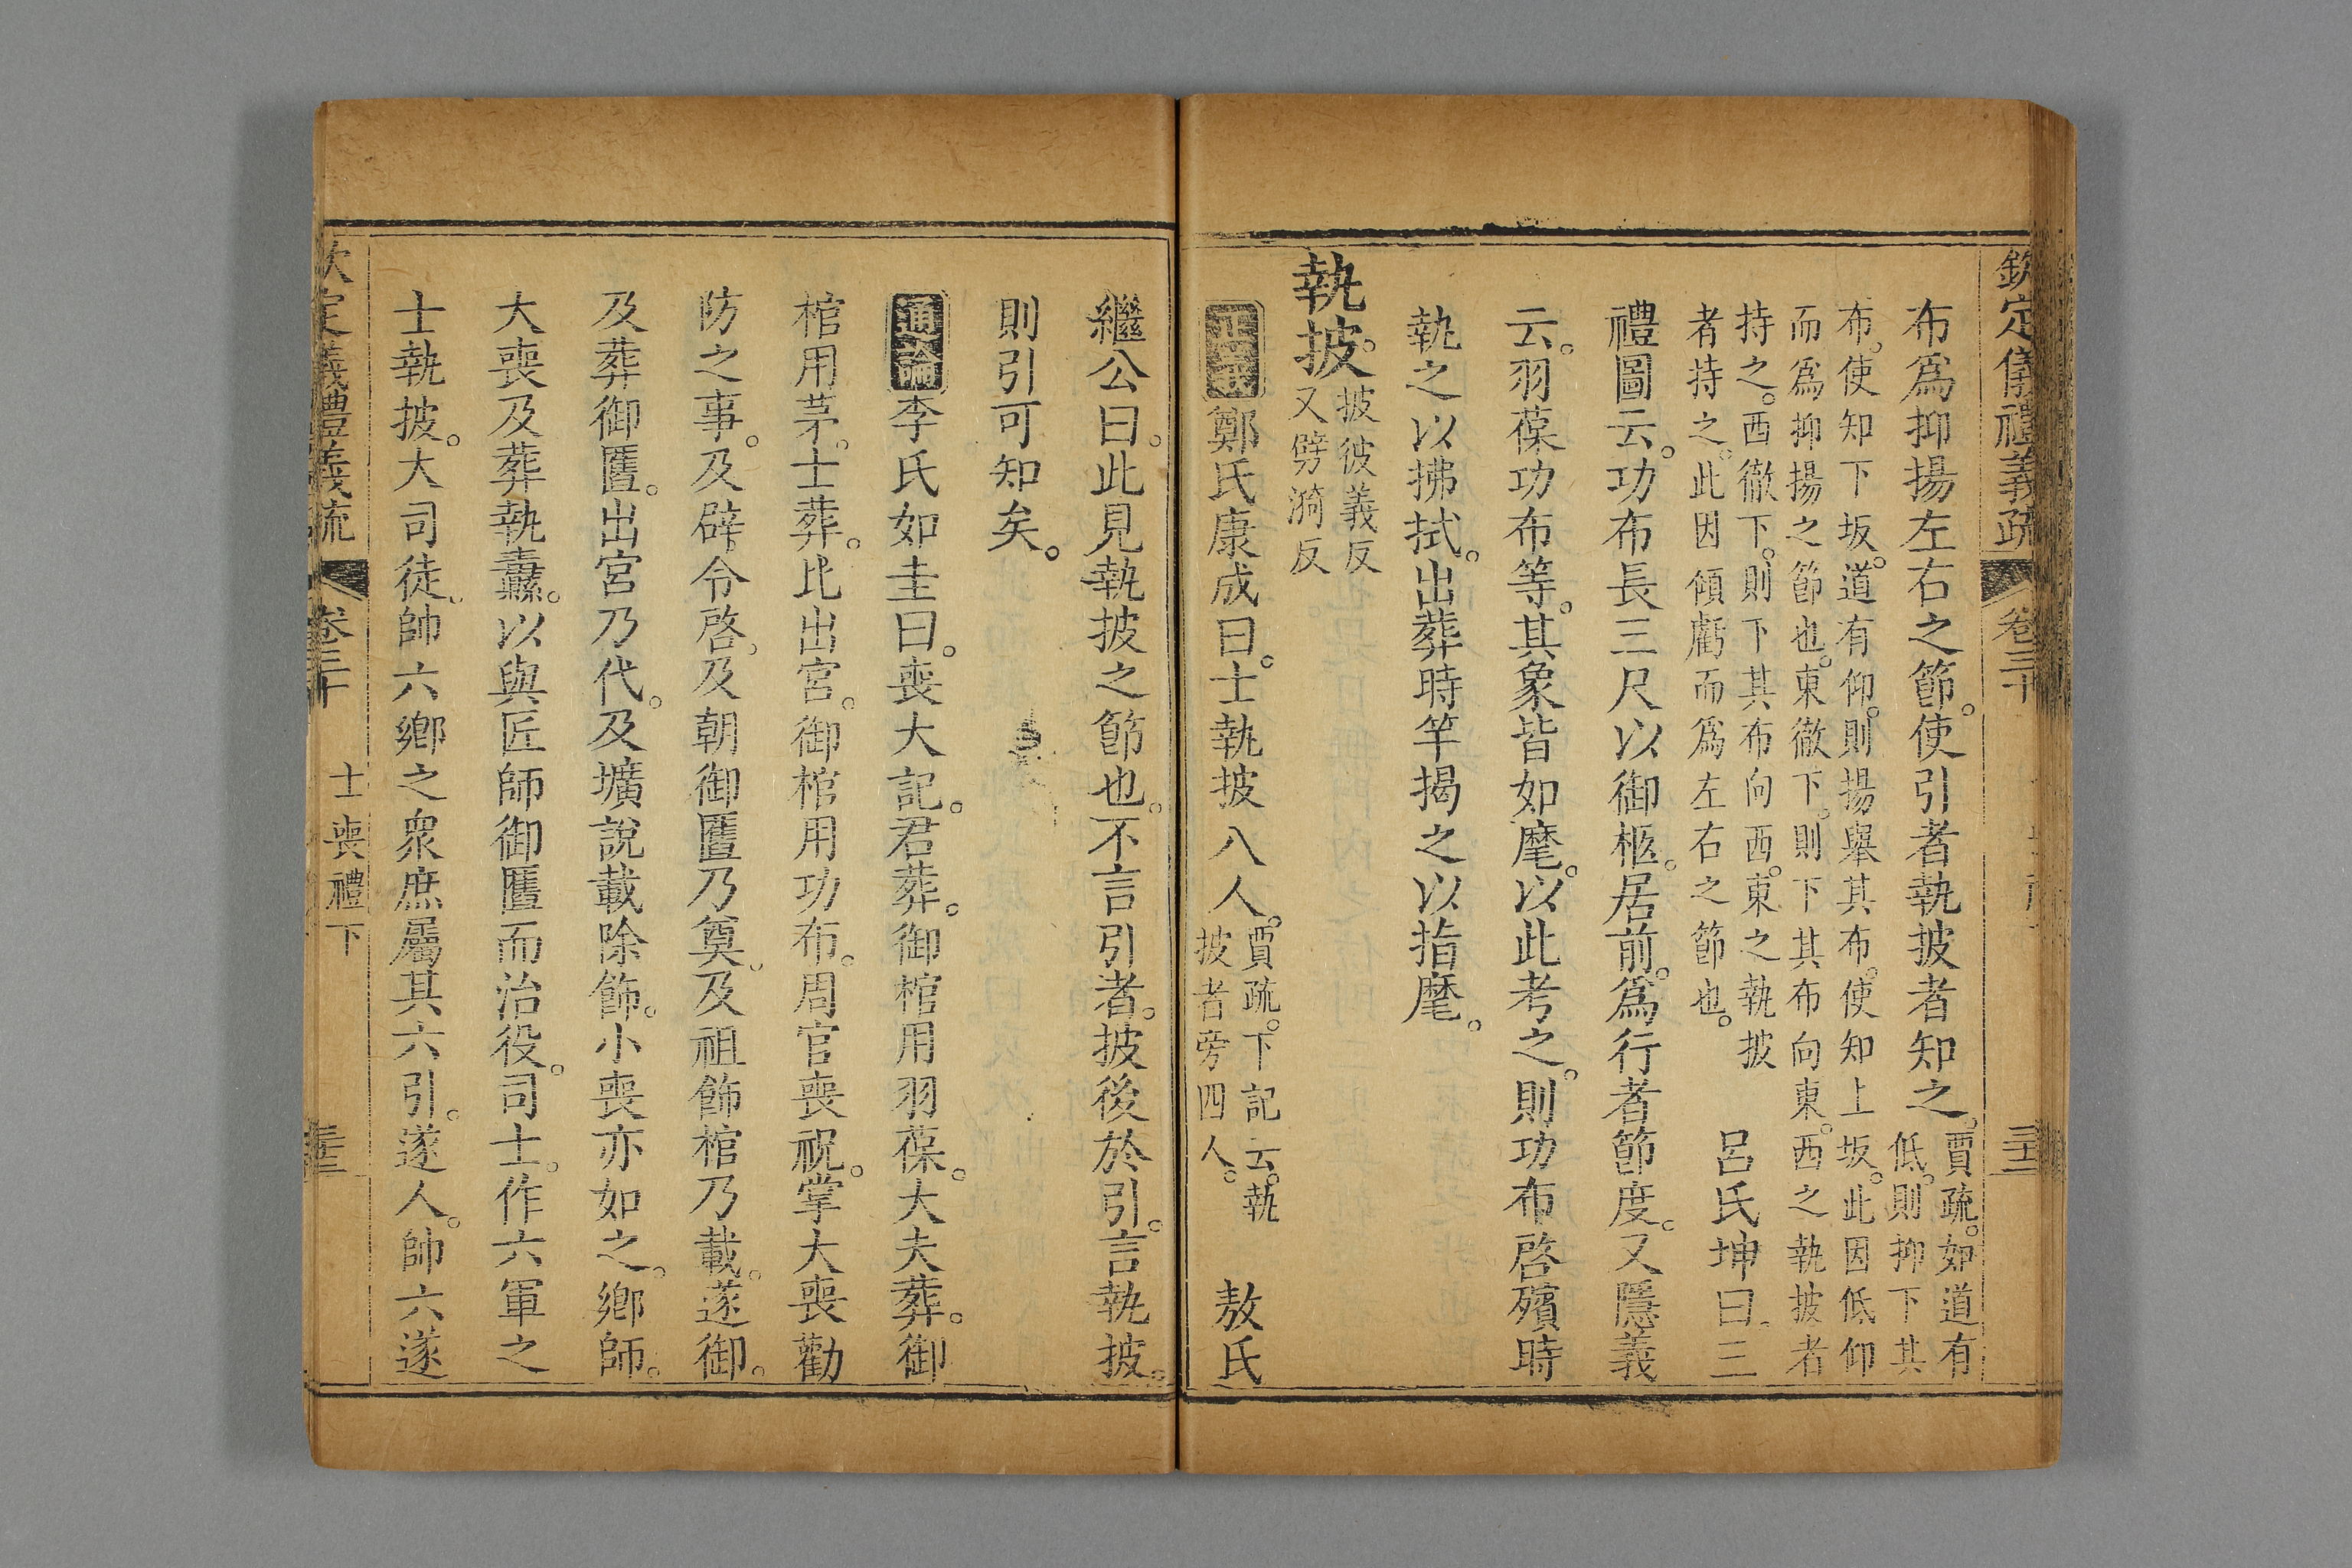 欽定儀禮義疏 卷三十 三十二
布爲抑揚左右之節。使引者執披者知之。賈疏。如道有
低。則抑下其
布。使知下坂。道有仰。則揚舉其布。使知上坂。此因低仰
而爲抑揚之節也。東徹下。則下其布向東。西之執披者
持之。西徹下。則下其布向西。東之執披
者持之。此因傾虧而爲左右之節也。
呂氏坤曰。三
禮圖云。功布長三尺以御柩。居前。爲行者節度。又隱義
云。羽葆功布等。其象皆如麾。以此考之。則功布啓殯時
執之以拂拭。出葬時竿揭之以指麾。
執披。披彼義反
又劈漪反
正義鄭氏康成曰。士執披八人。賈疏。下記云。執
披者旁四人。
敖氏
繼公曰。此見執披之節也。不言引者。披後於引。言執披。
則引可知矣。
通論李氏如圭曰。喪大記。君葬。御棺用羽葆。大夫葬。御
棺用茅。士葬。比出宮。御棺用功布。周官喪祝。掌大喪勸
防之事。及辟令啓。及朝御匶乃奠。及祖飾棺乃載。遂御。
及葬御匶。出宮乃代。及壙說載除飾。小喪亦如之。鄉師。
大喪及葬執纛。以與匠師御匶而治役。司士。作六軍之
士執披。大司徒。帥六鄉之衆庶屬其六引。遂人。帥六遂
欽定義禮義疏 卷三十 士喪禮下 三十三